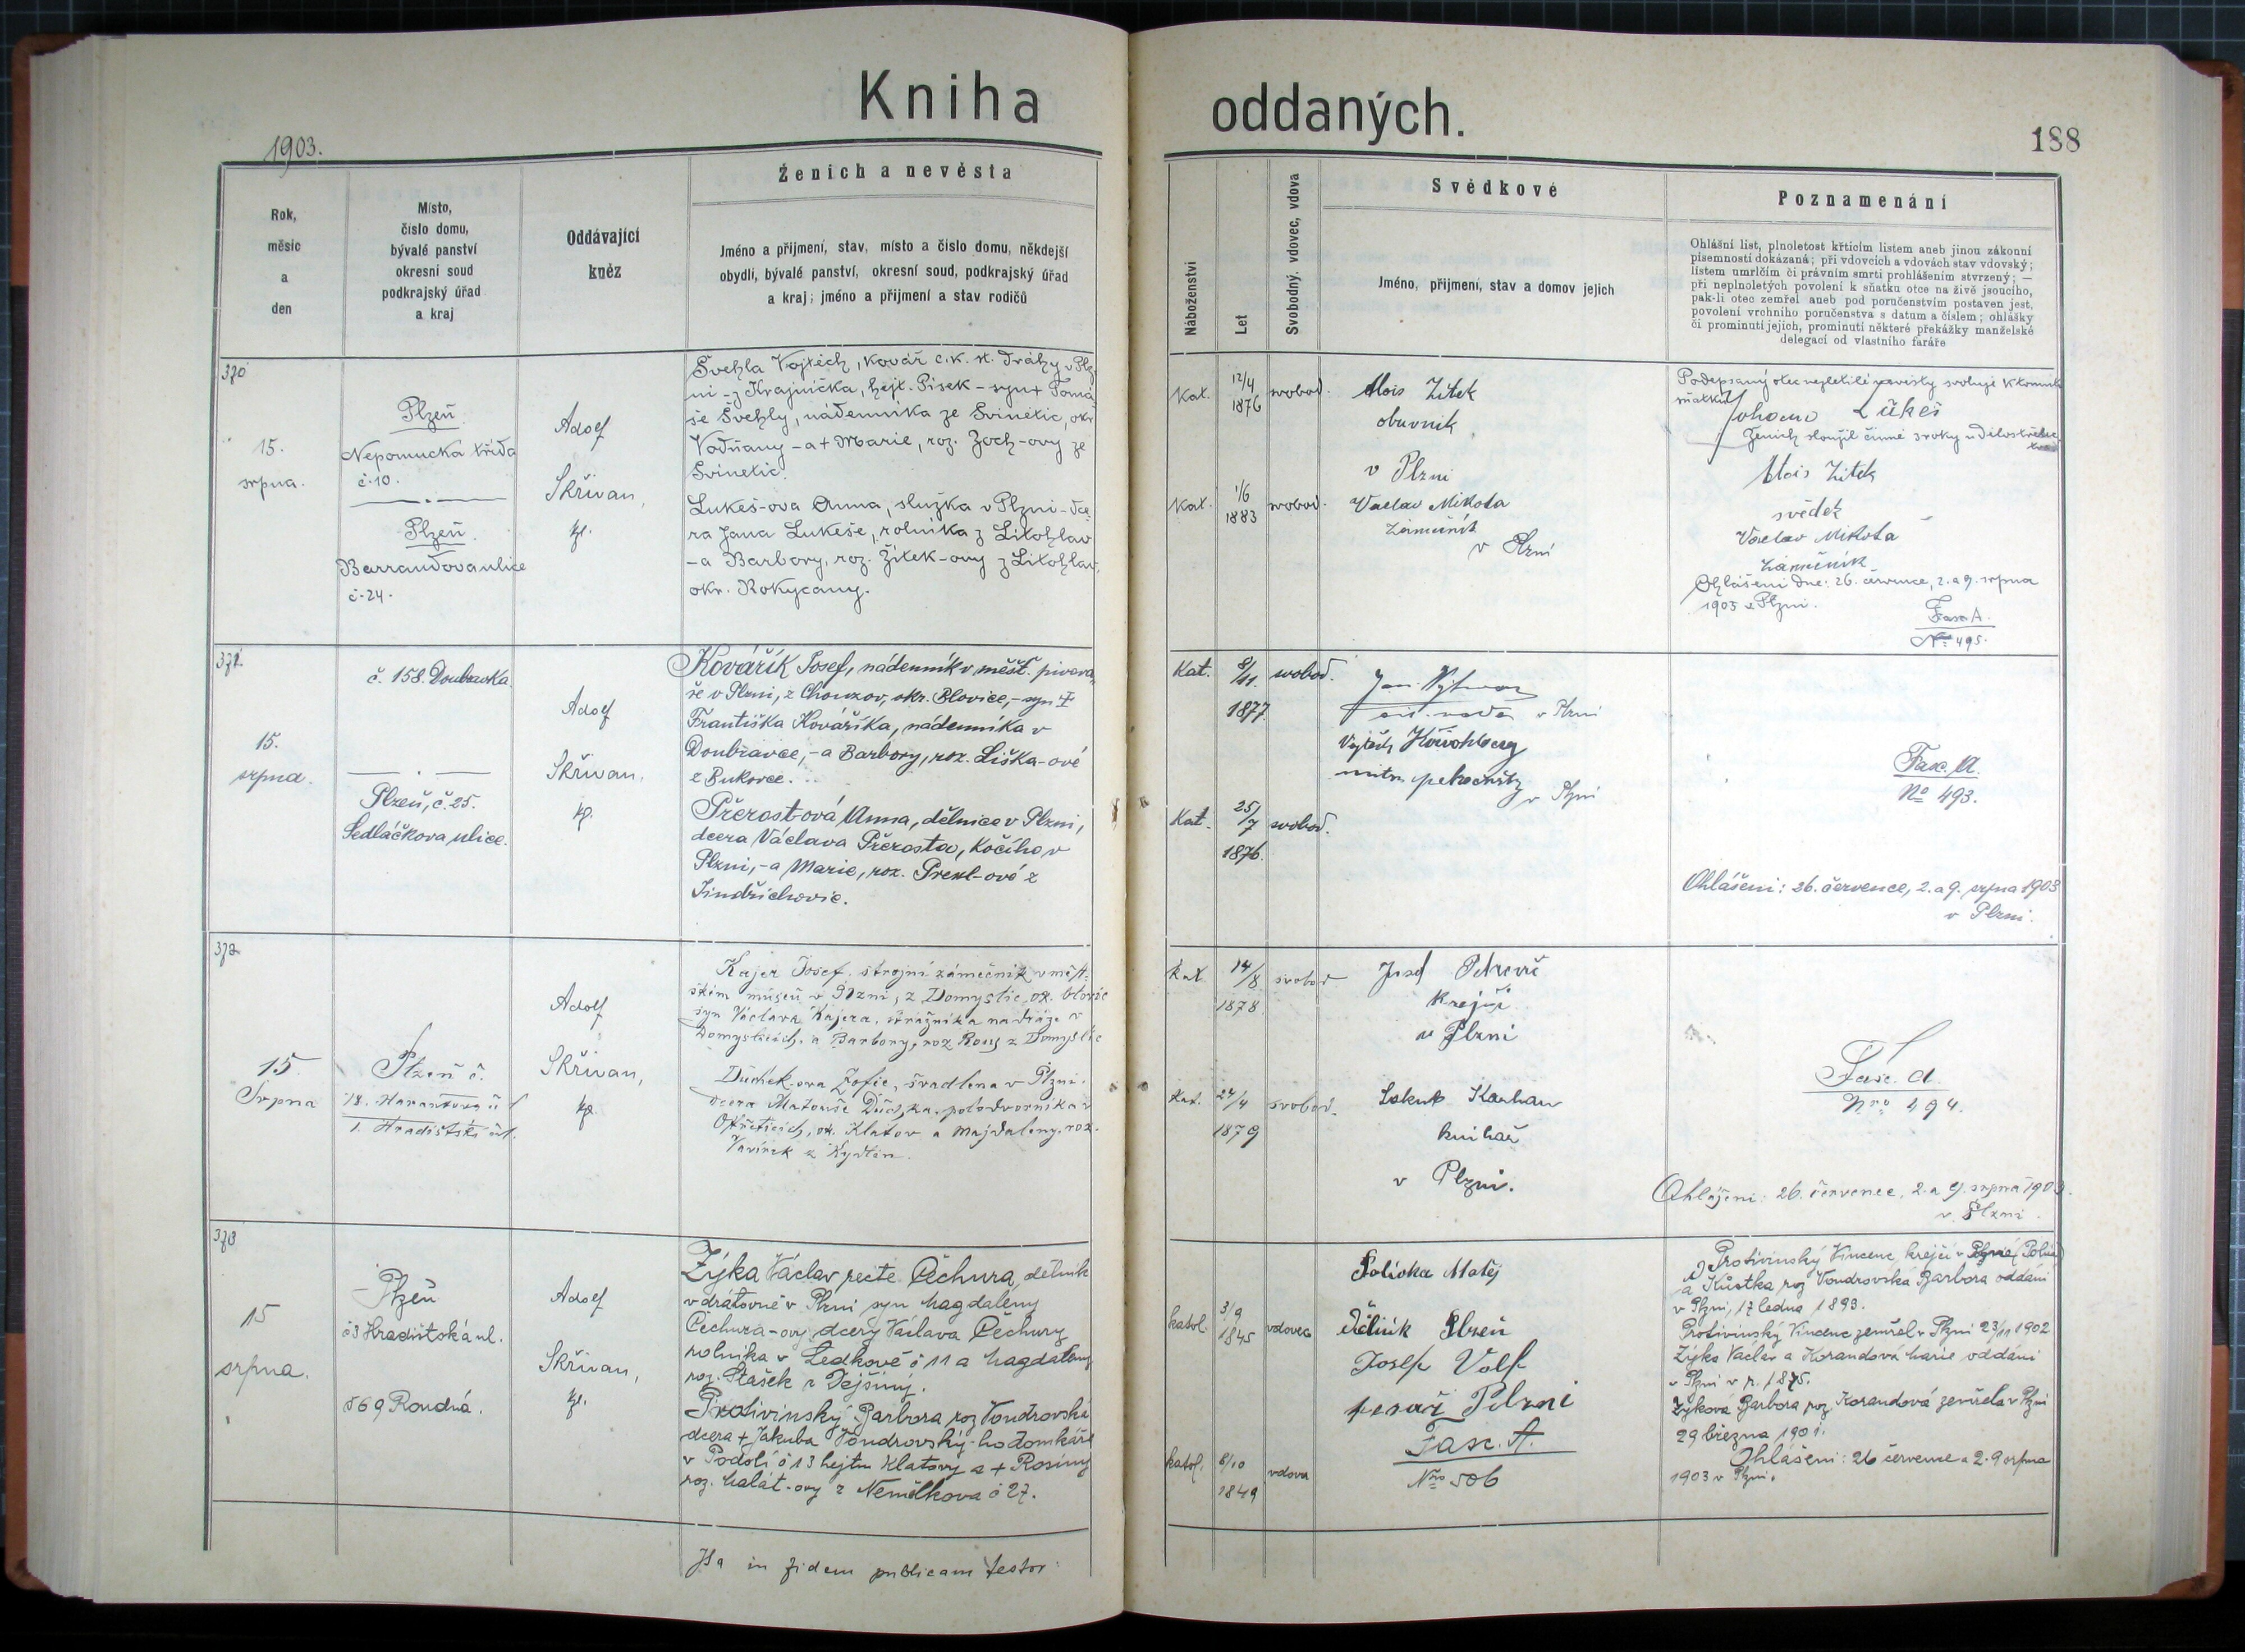 Kniha oddaných.
188
1903.
Rok,
měsíc
a
den
Místo,
číslo domu,
bývalé panství
okresní soud
podkrajský úřad
a kraj
Oddávající
kněz
Ženich a nevěsta
Jméno a příjmení, stav, místo a číslo domu, někdejší
obydlí, bývalé panství, okresní soud, podkrajský úřad
a kraj; jméno a příjmení a stav rodičů
Náboženství
Let
Svobodný, vdovec, vdova
Svědkové
Jméno, příjmení, stav a domov jejich
Poznamenání
Ohlášní list, plnoletost křticím listem aneb jinou zákonní
písemností dokázaná; při vdovcích a vdovách stav vdovský;
listem umrlčím či právním smrti prohlášením stvrzený; —
při neplnoletých povolení k sňatku otce na živě jsoucího,
pak-li otec zemřel aneb pod poručenstvím postaven jest,
povolení vrchního poručenstva s datum a číslem; ohlášky
či prominutí jejich, prominutí některé překážky manželské
delegací od vlastního faráře
370
15.
srpna.
Plzeň
Nepomucká třída
č. 10.
Plzeň.
Barrandova ulice
č. 24.
Adolf
Skřivan,
kpl.
Švehla Vojtěch, kovář c. k. st. dráhy v Plz
ni - z Krajníčka, hejt. Písek - syn + Tomá
še Švehly, nádenníka ze Svinětic, okr.
Vodňany - a + Marie, roz. Zoch-ovy ze
Svinětic.
Lukeš-ova Anna, služka v Plzni - dce
ra Jana Lukeše, rolníka z Litohlav
- a Barbory, roz. Žitek-ovy z Litohlav,
okr. Rokycany.
Kat. 12/4 1876 svobod.
Kat. 1/6 1883 svobod.
Alois Žitek
obuvník
v Plzni
Vaclav Mikota
Zámečník
v Plzni
Podepsaný otec nezletilé nevěsty svoluje k tomuto
sňatku
Johann Lukeš
Ženich sloužil činně 3 roky u dělostřelec
Alois Žitek
svědek
Vaclav Mikota
zámečník
Ohlášeni dne: 26. července, 2. a 9. srpna
1903 v Plzni.
Fasc A.
No 495.
371.
15.
srpna.
č. 158. Doubravka.
Plzeň, č. 25.
Sedláčkova ulice.
Adolf
Skřivan,
kpl.
Kovářík Josef, nádenník v měšť. pivova
ře v Plzni, z Chouzov, okr. Blovice, - syn +
Františka Kováříka, nádenníka v
Doubravce, - a Barbory, roz. Liška-ové
z Bukovce.
Přerost-ová Anna, dělnice v Plzni,
dcera Václava Přerosta, kočího v
Plzni, - a Marie, roz. Prexl-ové z
Jindřichovic.
Kat. 8/11. 1877. svobod.
Kat. 25/7 1876. svobod.
v Plzni
Vojtěch
v Plzni
Fasc. A.
No 493.
Ohlášeni: 26. července, 2. a 9. srpna 1903
v Plzni.
372
15.
Srpna
Plzeň č.
18. Harantova ul
1. Hradištská ul.
Adolf
Skřivan,
kpl.
Kajer Josef, strojní zámečník v měst-
ském museu v Plzni, z Domyslic, ok. Blovic
syn Václava Kajera, strážníka na dráze v
Domyslicích, a Barbory, roz Rous z Domyslic
Duchek-ova Žofie, švadlena v Plzni.
dcera Matouše Duchka, polodvorníka v
ok. Klatov a Majdaleny, roz.
Vavírek z Kydlin.
Kat. 14/8 1878 svobod
Kat. 24/4 1879 svobod.
Josef
Krejčí
v Plzni
Jakub
knihař
v Plzni.
Fasc. A.
Nro 494.
Ohlášeni: 26. červenec, 2. a 9. srpna 1903.
v Plzni.
373
15
srpna.
Plzeň
č 3 Hradištská ul.
569 Roudná.
Adolf
Skřivan,
kpl.
Zýka Václav recte Čechura, dělník
v drátovně v Plzni syn Magdalény
Čechura-ovy dcery Václava Čechury
rolníka v Ledkově č 11 a Magdaleny
roz. Stašek z Dejšiny.
Protivinský Barbora roz Vondrovská
dcera + Jakuba Vondrovský-ho domkáře
v Podolí č 13 hejtm Klatovy a + Rosiny
roz. Malát-ovy z Nemilkova č 27.
katol. 3/9 1845 vdovec
katol. 8/10 1849 vdova
Polívka Matěj
Dělník Plzeň
Josef Volf
pekař Plzni
Fasc. A.
Nro 506
Protivinský Vincenc, krejčí v Plzni
a Kůstka roz Vondrovská Barbora oddáni
v Plzni, 17 ledna 1893.
Protivinský Vincenc zemřel v Plzni 23/11 1902
Zýka Václav a Korandová Marie oddáni
v Plzni v r. 1875.
Zýková Barbora roz. Korandová zemřela v Plzni
29 března 1901.
Ohlášeni: 26 července a 2. 9 srpna
1903 v Plzni.
Ita in fidem publicam testor: